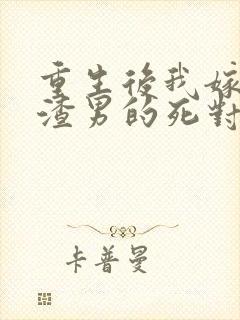 重生後我嫁
渣男的死對
卡普曼